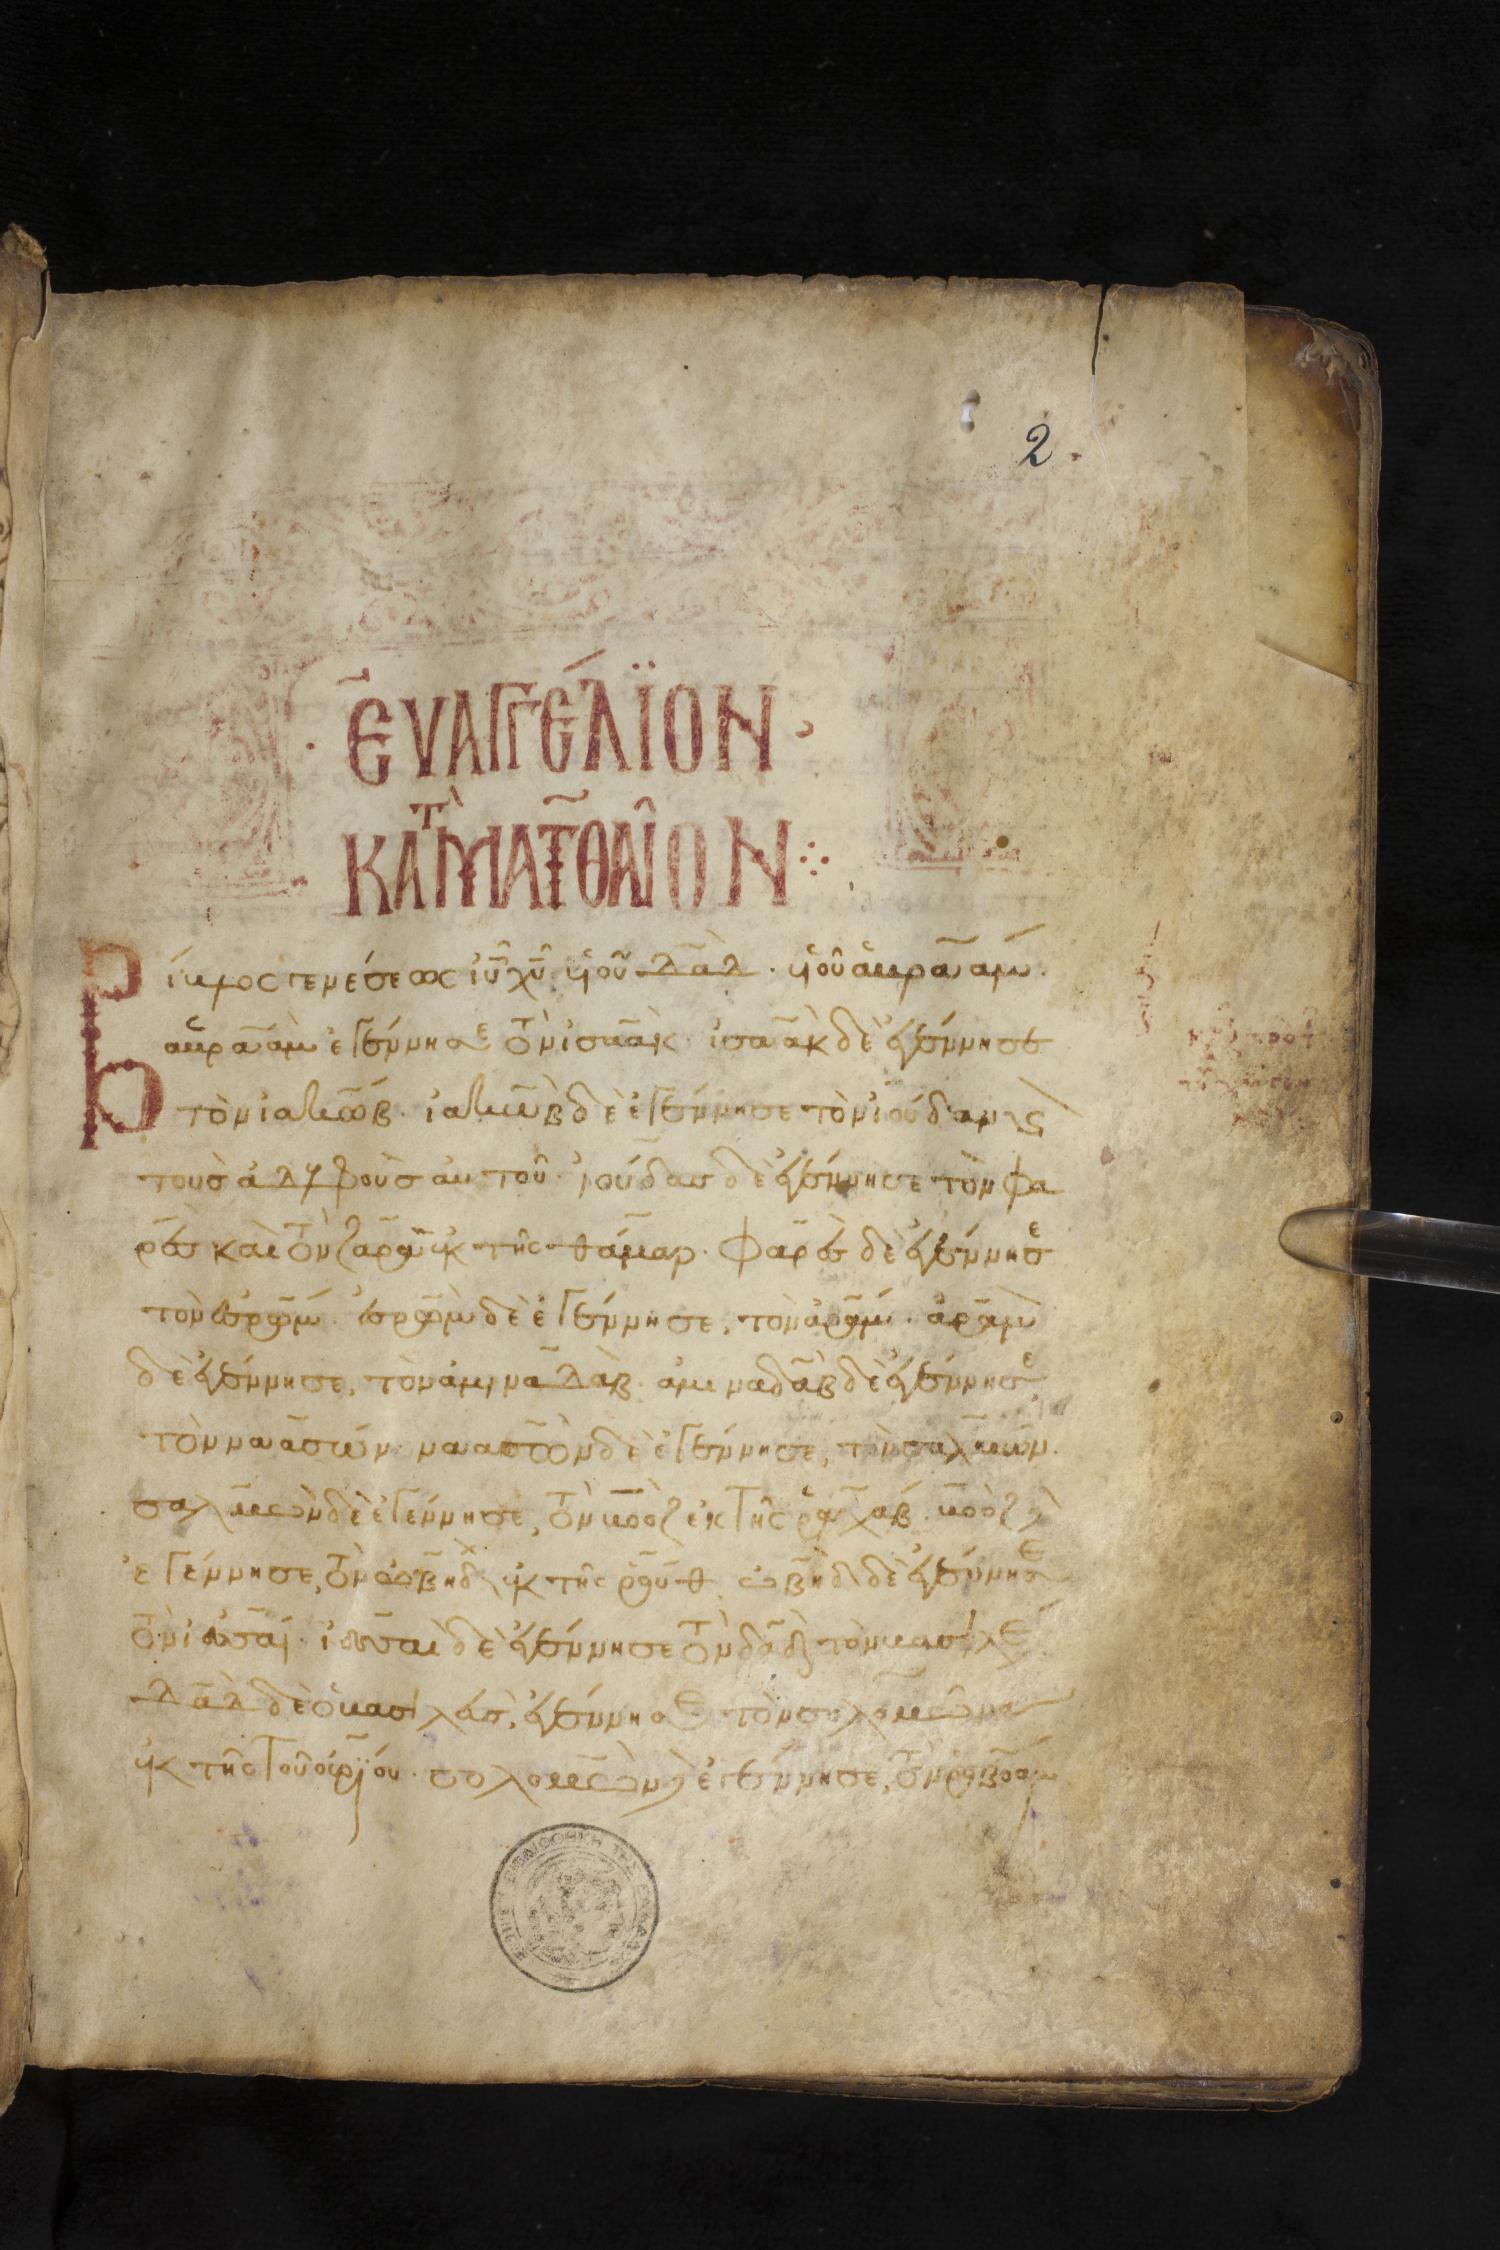 2
ΕΥΑΓΓΕΛΪΟΝ
ΚΑΤ ΜΑΤΘΑΙΟΝ
Βίβλος γενέσεως ἰῦ χῦ υἱοῦ δᾱδ · υἱοῦ ἀβραάμ ·
ἀβραὰμ ἐγέννησε τὸν ἰσαάκ · ἰσαὰκ δὲ ἐγέννησε
τὸν ἰακώβ · ἰακὼβ δὲ ἐγέννησε τὸν ἰούδαν κς
τοὺς ἀδελφοὺς αὐτοῦ · ἰούδας δὲ ἐγέννησε τὸν φα
ρὲς καὶ τὸν ζαρὰ ἐκ τῆς θάμαρ · φαρὲς δὲ ἐγέννησε
τὸν ἐσρώμ · ἐσρὼμ δὲ ἐγέννησε, τὸν ἀράμ · ἀρὰμ
δὲ ἐγέννησε, τὸν ἀμιναδάβ · ἀμιναδὰβ δὲ ἐγέννησε
τὸν ναασών · ναασὼν δὲ ἐγέννησε, τὸν σαλμών ·
σαλμὼν δὲ ἐγέννησε, τὸν βοὸζ ἐκ τῆς ῥαχάβ · βοὸζ δὲ
ἐγέννησε, τὸν ὠβὴδ ἐκ τῆς ῥούθ · ὠβὴδ δὲ ἐγέννησε
τὸν ἰεσσαί · ἰεσσαὶ δὲ ἐγέννησε τὸν δᾱδ τὸν βασιλέ
δᾱδ δὲ ὁ βασιλεὺς, ἐγέννησε τὸν σολομῶνα
ἐκ τῆς τοῦ οὐρίου · σολομὼν δὲ ἐγέννησε, τὸν ῥοβοάμ